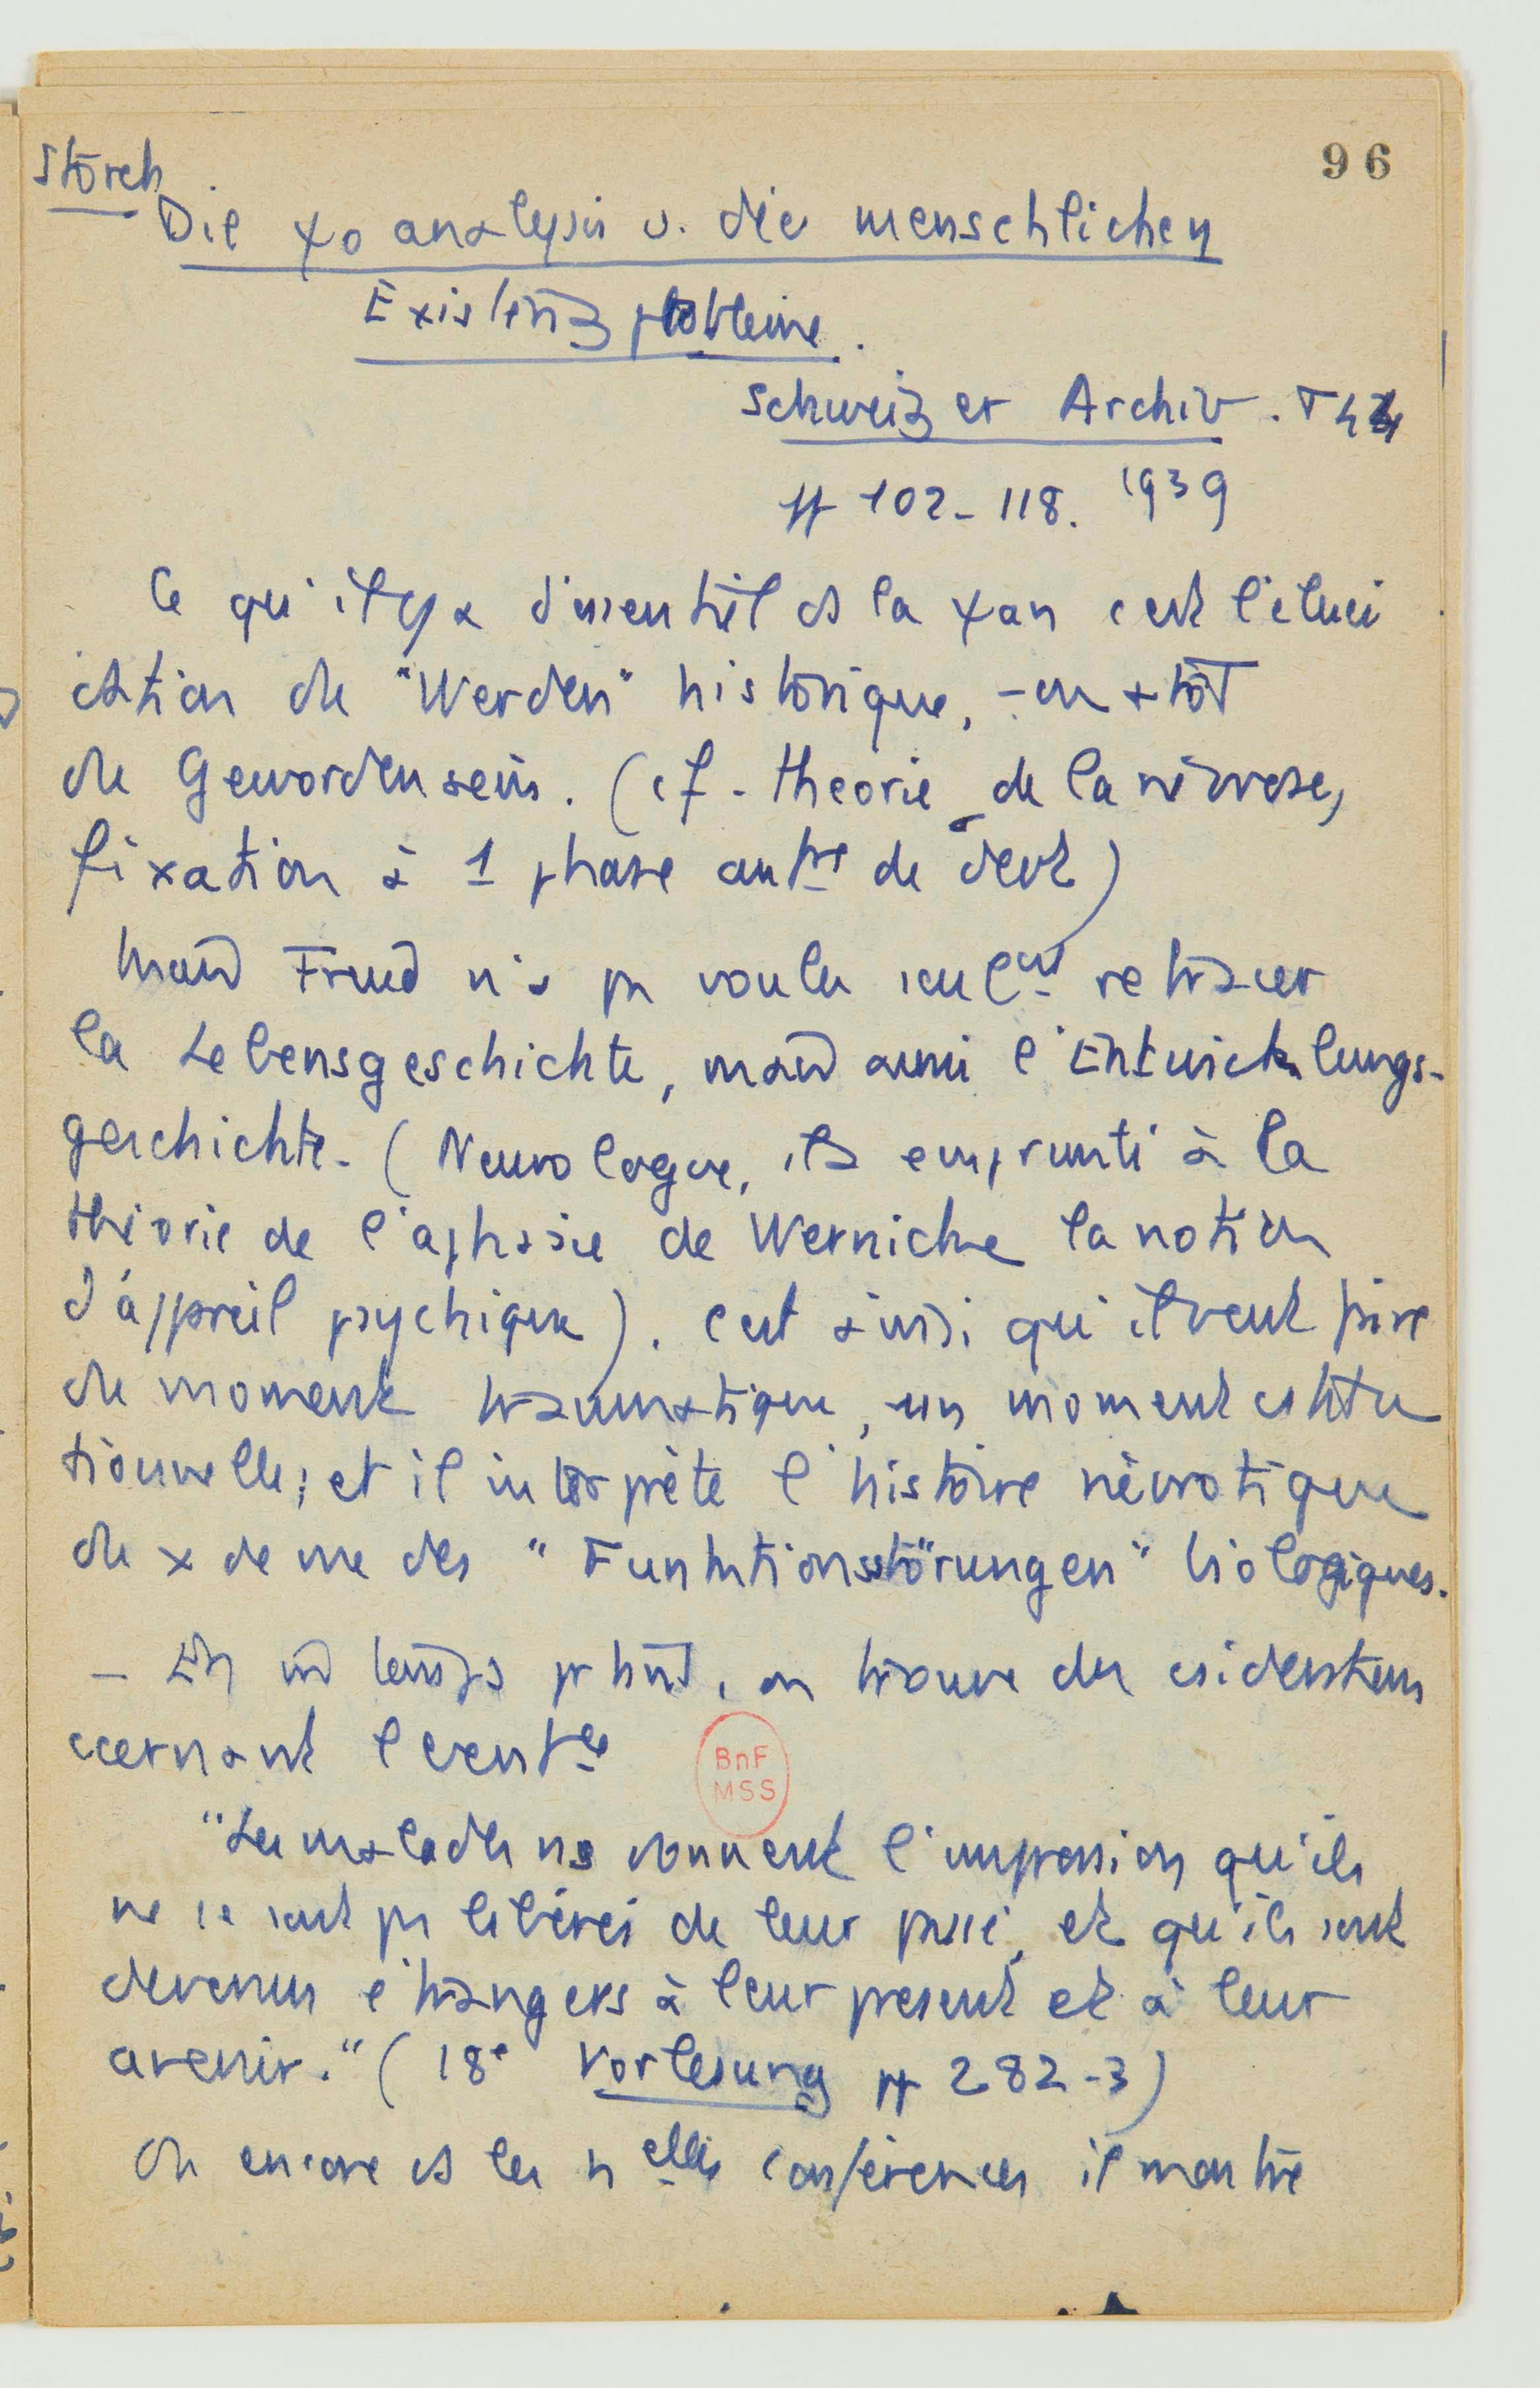 96
Storch
Die ψoanalysis u. die menschlichen
Existenzprobleme.
Schweizer Archiv. T 44
pp 102-118. 1939
Ce qu'il y a d'essentiel ds la ψan c'est l'éluci
dation du "Werden" historique, - ou + tôt
du Gewordensein. (cf. théorie de la névrose,
fixation à 1 phase du devt)
Mais Freud n'a pas voulu seulet retracer
la Lebensgeschichte, mais aussi l'Entwicklungs-
geschichte. (Neurologue, il a emprunté à la
théorie de l'aphasie de Wernicke la notion
d'appareil psychique). C'est ainsi qu'il veut faire
du moment traumatique, un moment constitu
tionnelle; et il interprète l'histoire névrotique
du comme des "Funktionsstörungen" biologiques.
- En tant, on trouve des
cernant
"Les malades ns donnent l'impression qu'ils
ne se sont pas libérés de leur passé, et qu'ils sont
devenus étrangers à leur présent et à leur
avenir." (18e Vorlesung pp 282-3)
Ou encore ds les nelles conférences il montre
BnF
MSS